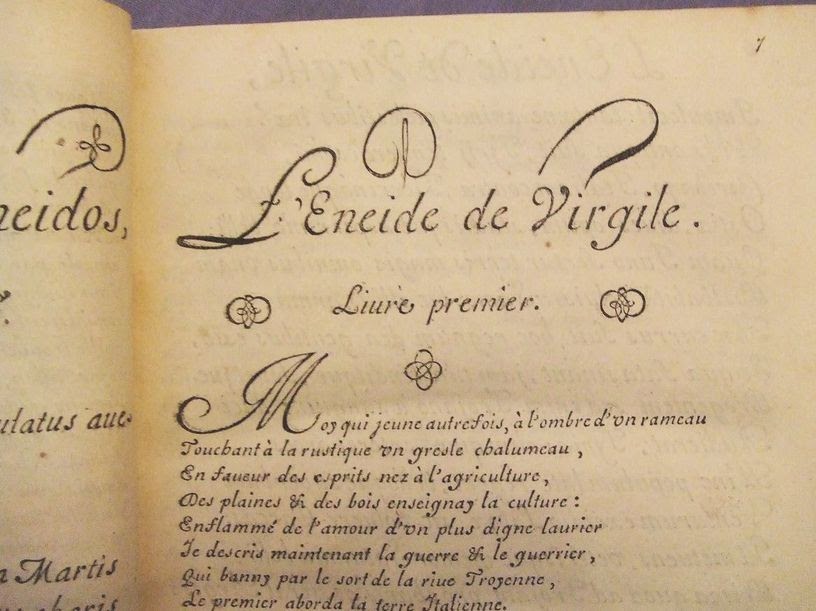 7
L'Eneide de Virgile.
Liure premier.
Moy qui jeune autrefois, à l'ombre d'vn rameau
Touchant à la rustique vn gresle chalumeau,
En faueur des esprits nez à l'agriculture,
Des plaines & des bois enseignay la culture:
Enflammé de l'amour d'vn plus digne laurier
Je descris maintenant la guerre & le guerrier,
Qui banny par le sort de la riue Troyenne,
Le premier aborda la terre Italienne.
neidos,
ulatus aue
Martis